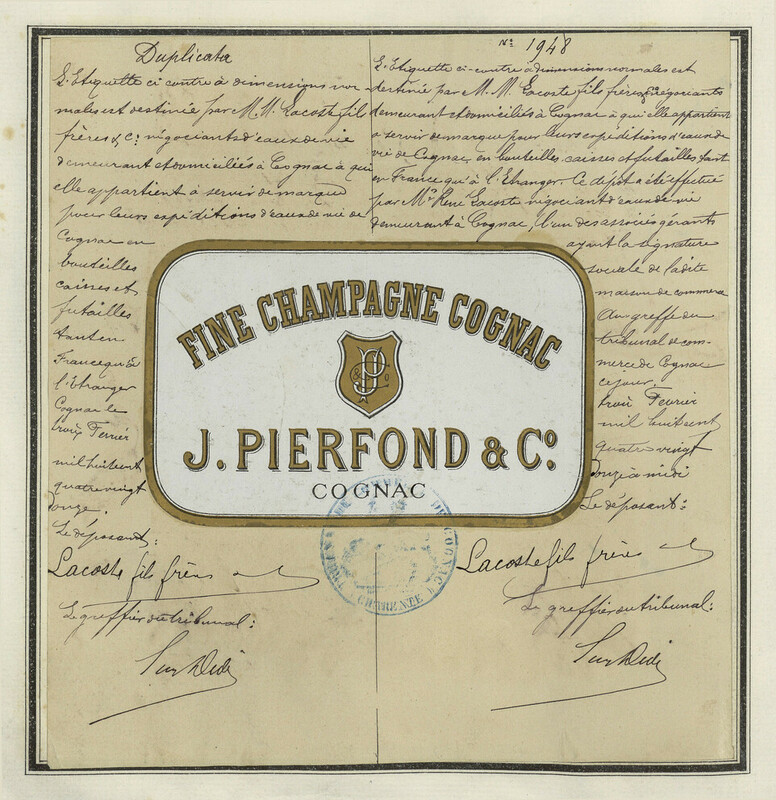 Duplicata
L'Etiquette ci contre à dimensions nor-
males est destinée par M.M. Lacoste fils
frères & Cie négociants d'eaux de vie
demeurant et domiciliés à Cognac à qui
elle appartient à servir de marque
pour leurs expéditions d'eaux de vie de
Cognac en
bouteilles
caisses et
futailles
tant en
France qu'à
l'Etranger
Cognac le
trois Février
mil huit cent
quatre vingt
onze.
Le déposant:
Lacoste fils frères
Le greffier du tribunal:
No 1948
L'Etiquette ci-contre à dimensions normales est
destinée par M.M. Lacoste fils frères négociants
demeurant et domiciliés à Cognac à qui elle appartient
à servir de marque pour leurs expéditions d'eaux de
vie de Cognac, en bouteilles caisses et futailles tant
en France qu'à l'Etranger. Ce dépôt a été effectué
par Mr René Lacoste négociant d'eaux de vie
demeurant à Cognac, l'un des associés gérants
ayant la signature
sociale de ladite
maison de commerce
Au greffe du
tribunal de com-
merce de Cognac
ce jour,
trois Février
mil huit cent
quatre vingt
onze à midi
Le déposant:
Lacoste fils frères
Le greffier du tribunal:
FINE CHAMPAGNE COGNAC
J. PIERFOND & Co.
COGNAC
DE COGNAC
CHARENTE